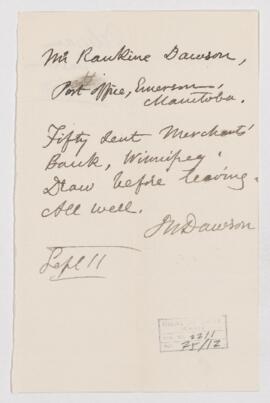 Mr Rankine Dawson,
Post Office, Emerson,
Manitoba.
Fifty sent Merchants'
Bank, Winnipeg.
Draw before leaving.
All well.
JWDawson
Sept 11
2211
75/12